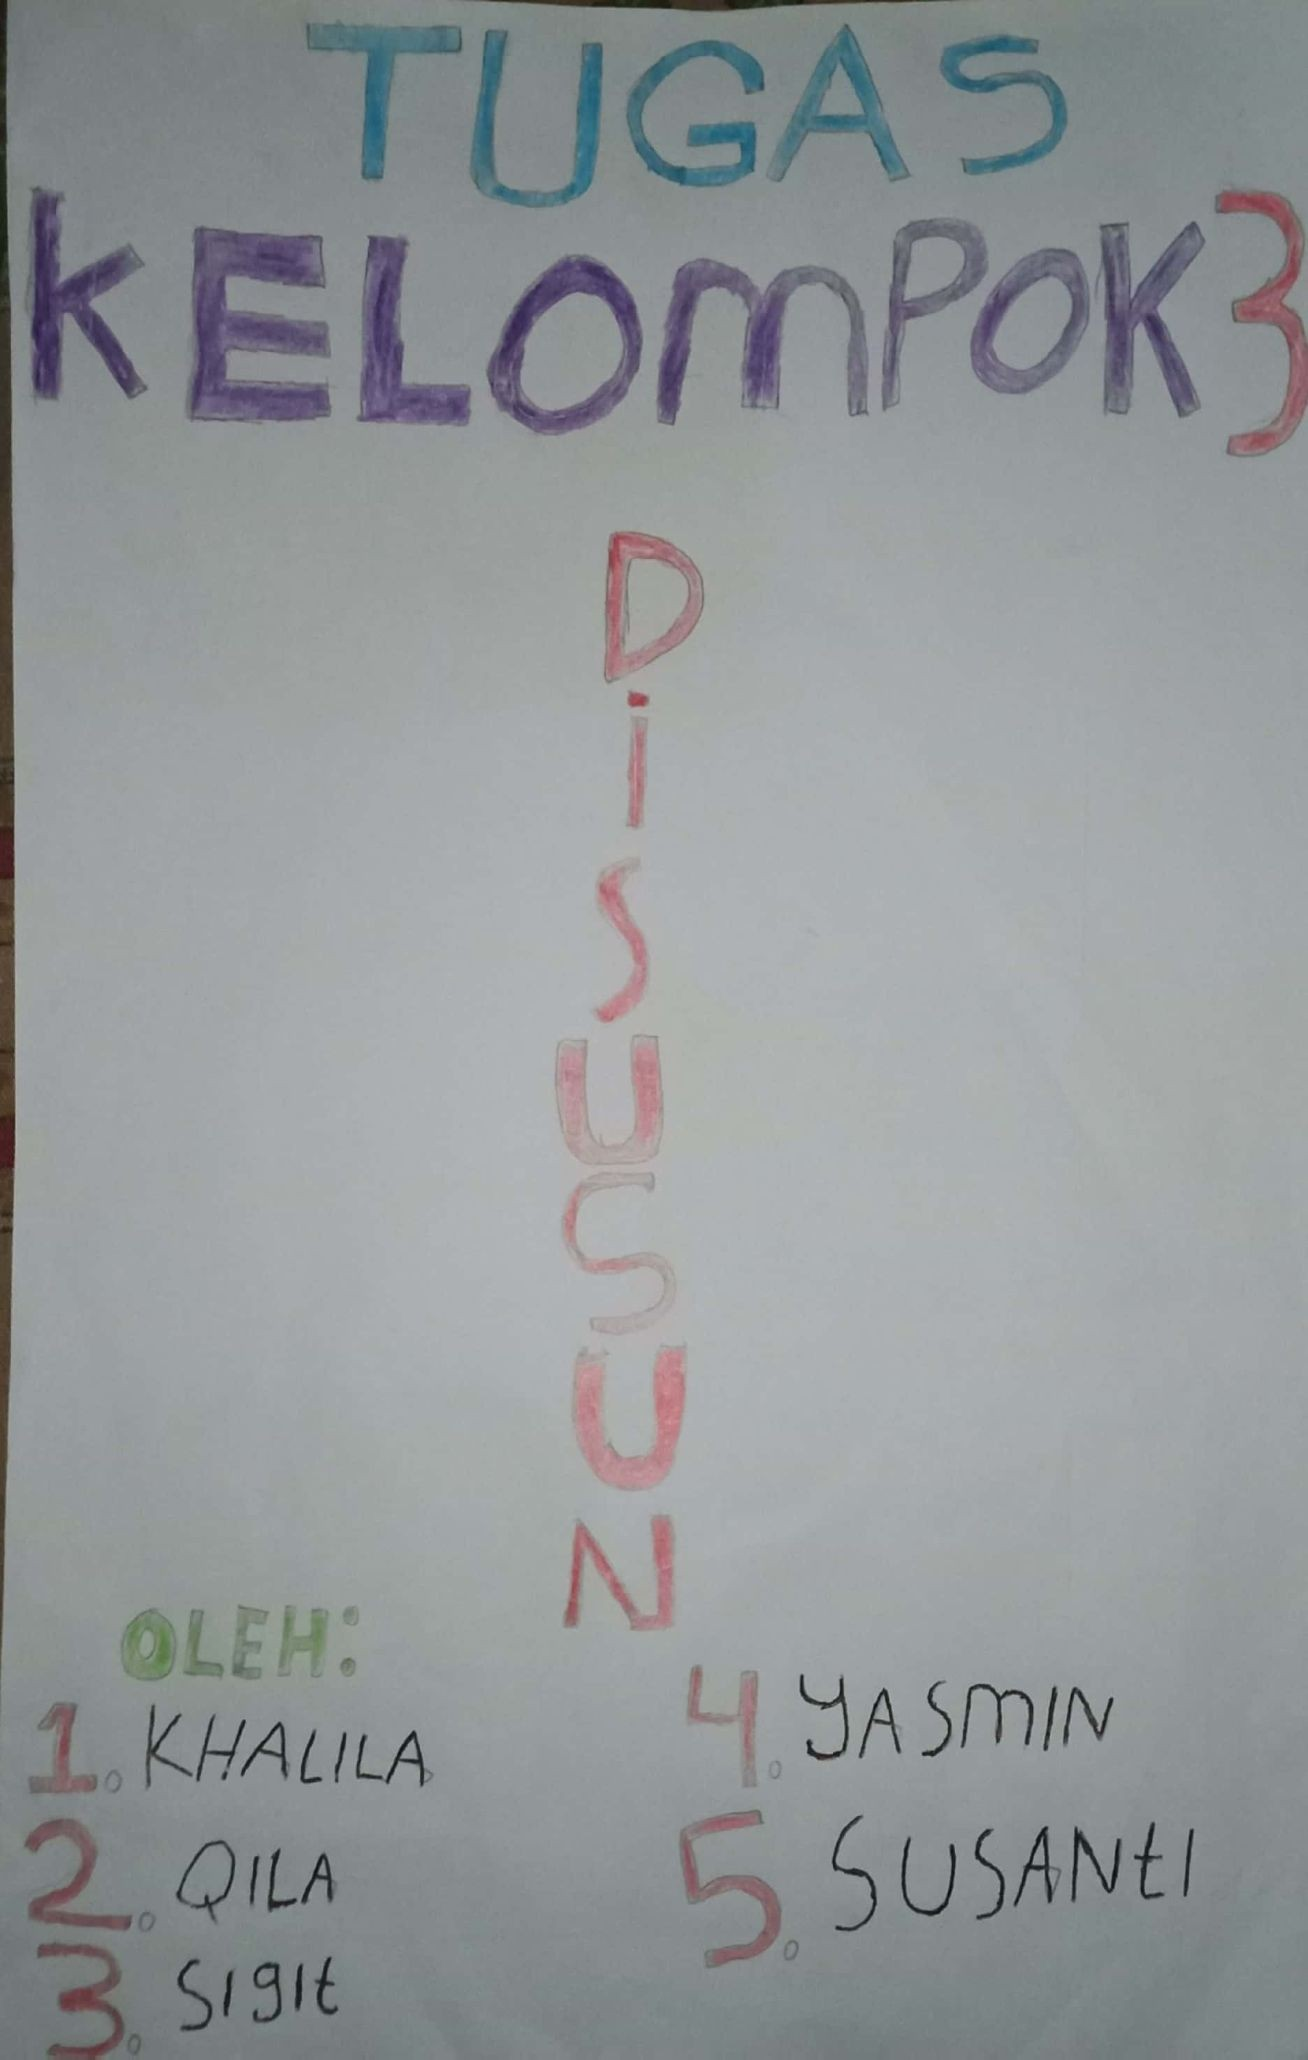 TUGAS
KELOMPOK 3
DiSUSUN
OLEH:
1. KHALILA
2. QILA
3. SIgIt
4. YASMIN
5. SUSANtI